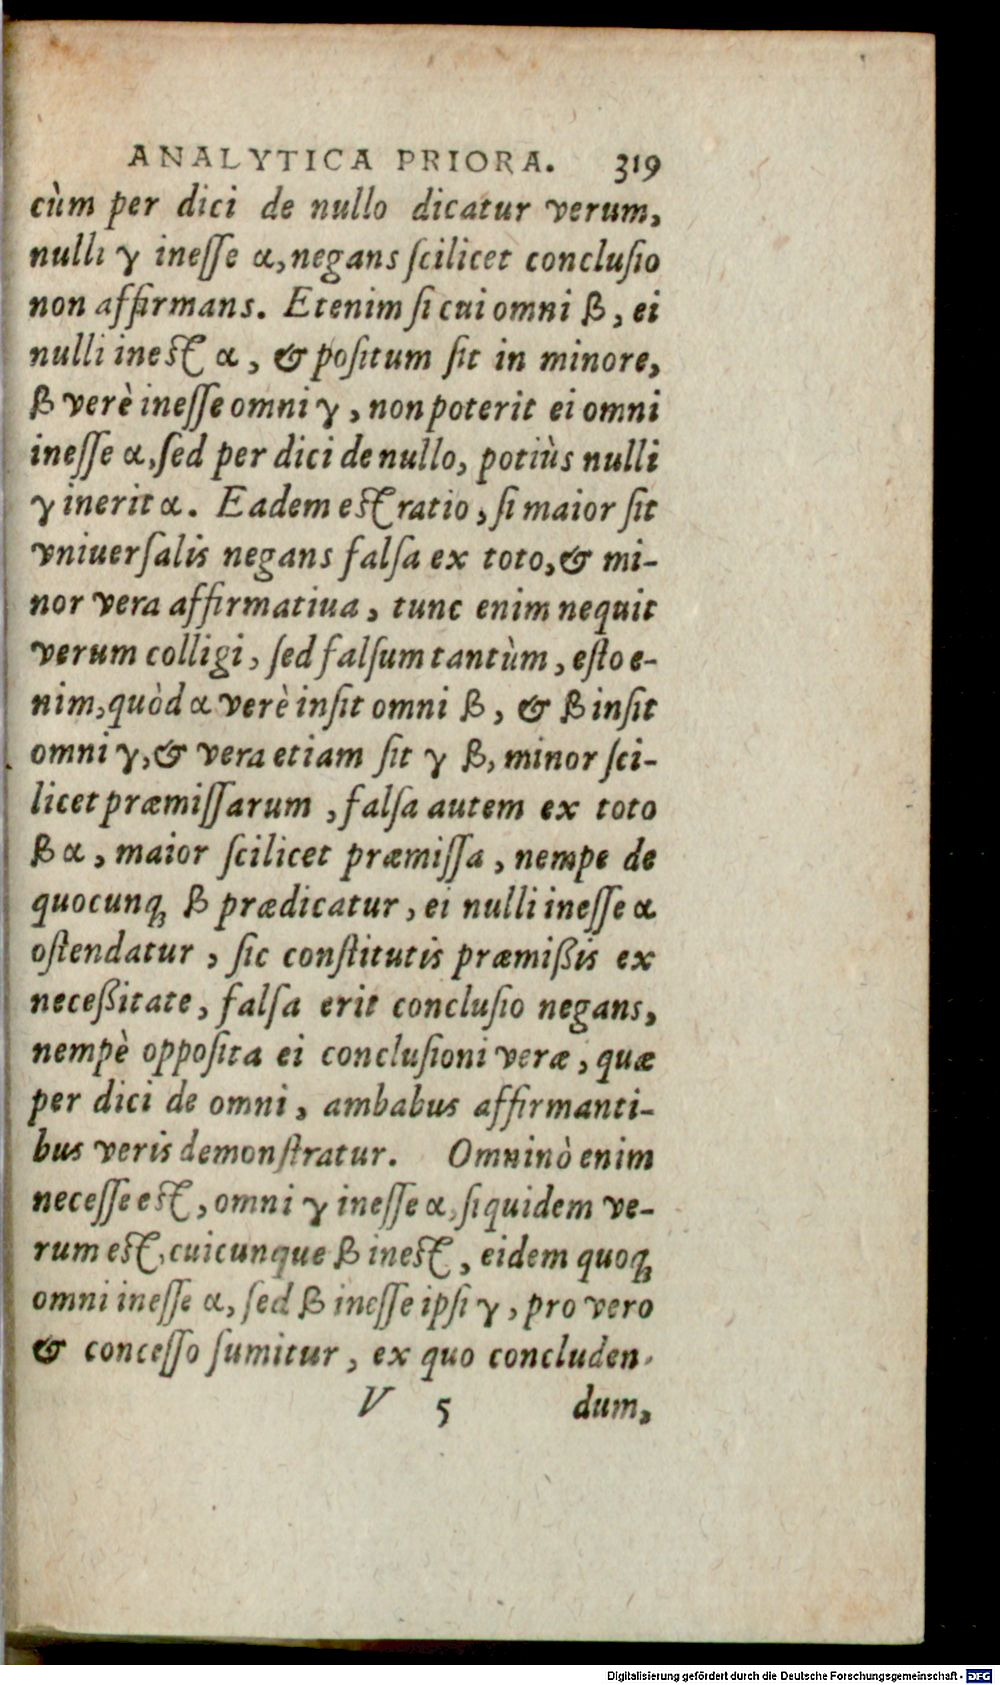 ANALYTICA PRIORA. 319
cùm per dici de nullo dicatur verum,
nulli γ ineſſe α, negans ſcilicet concluſio
non affirmans. Etenim ſi cui omni β, ei
nulli ineſt α, & poſitum ſit in minore,
β verè ineſſe omni γ, non poterit ei omni
ineſſe α, ſed per dici de nullo, potiùs nulli
γ inerit α. Eadem eſt ratio, ſi maior ſit
vniuerſalis negans falſa ex toto, & mi-
nor vera affirmatiua, tunc enim nequit
verum colligi, ſed falſum tantùm, eſto e-
nim, quòd α verè inſit omni β, & β inſit
omni γ, & vera etiam ſit γ β, minor ſci-
licet præmiſſarum, falſa autem ex toto
β α, maior ſcilicet præmiſſa, nempe de
quocunq; β prædicatur, ei nulli ineſſe α
oſtendatur, ſic conſtitutis præmißis ex
neceßitate, falſa erit concluſio negans,
nempè oppoſita ei concluſioni veræ, quæ
per dici de omni, ambabus affirmanti-
bus veris demonſtratur. Omninò enim
neceſſe eſt, omni γ ineſſe α, ſiquidem ve-
rum eſt, cuicunque β ineſt, eidem quoq;
omni ineſſe α, ſed β ineſſe ipſi γ, pro vero
& conceſſo ſumitur, ex quo concluden-
V 5 dum,
Digitalisierung gefördert durch die Deutsche Forschungsgemeinschaft - DFG